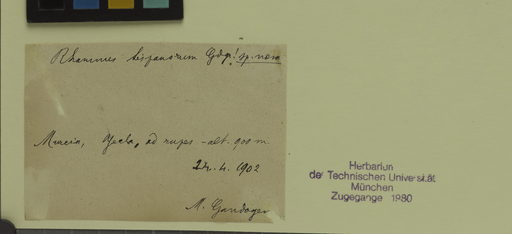 Rhamnus hispanorum Gdgr! sp. nova
Murcia, Yecla, ad rupes - alt. 900 m
24. 4. 1902
M. Gandoger
Herbarium
der Technischen Universität
München
Zugegange 1980